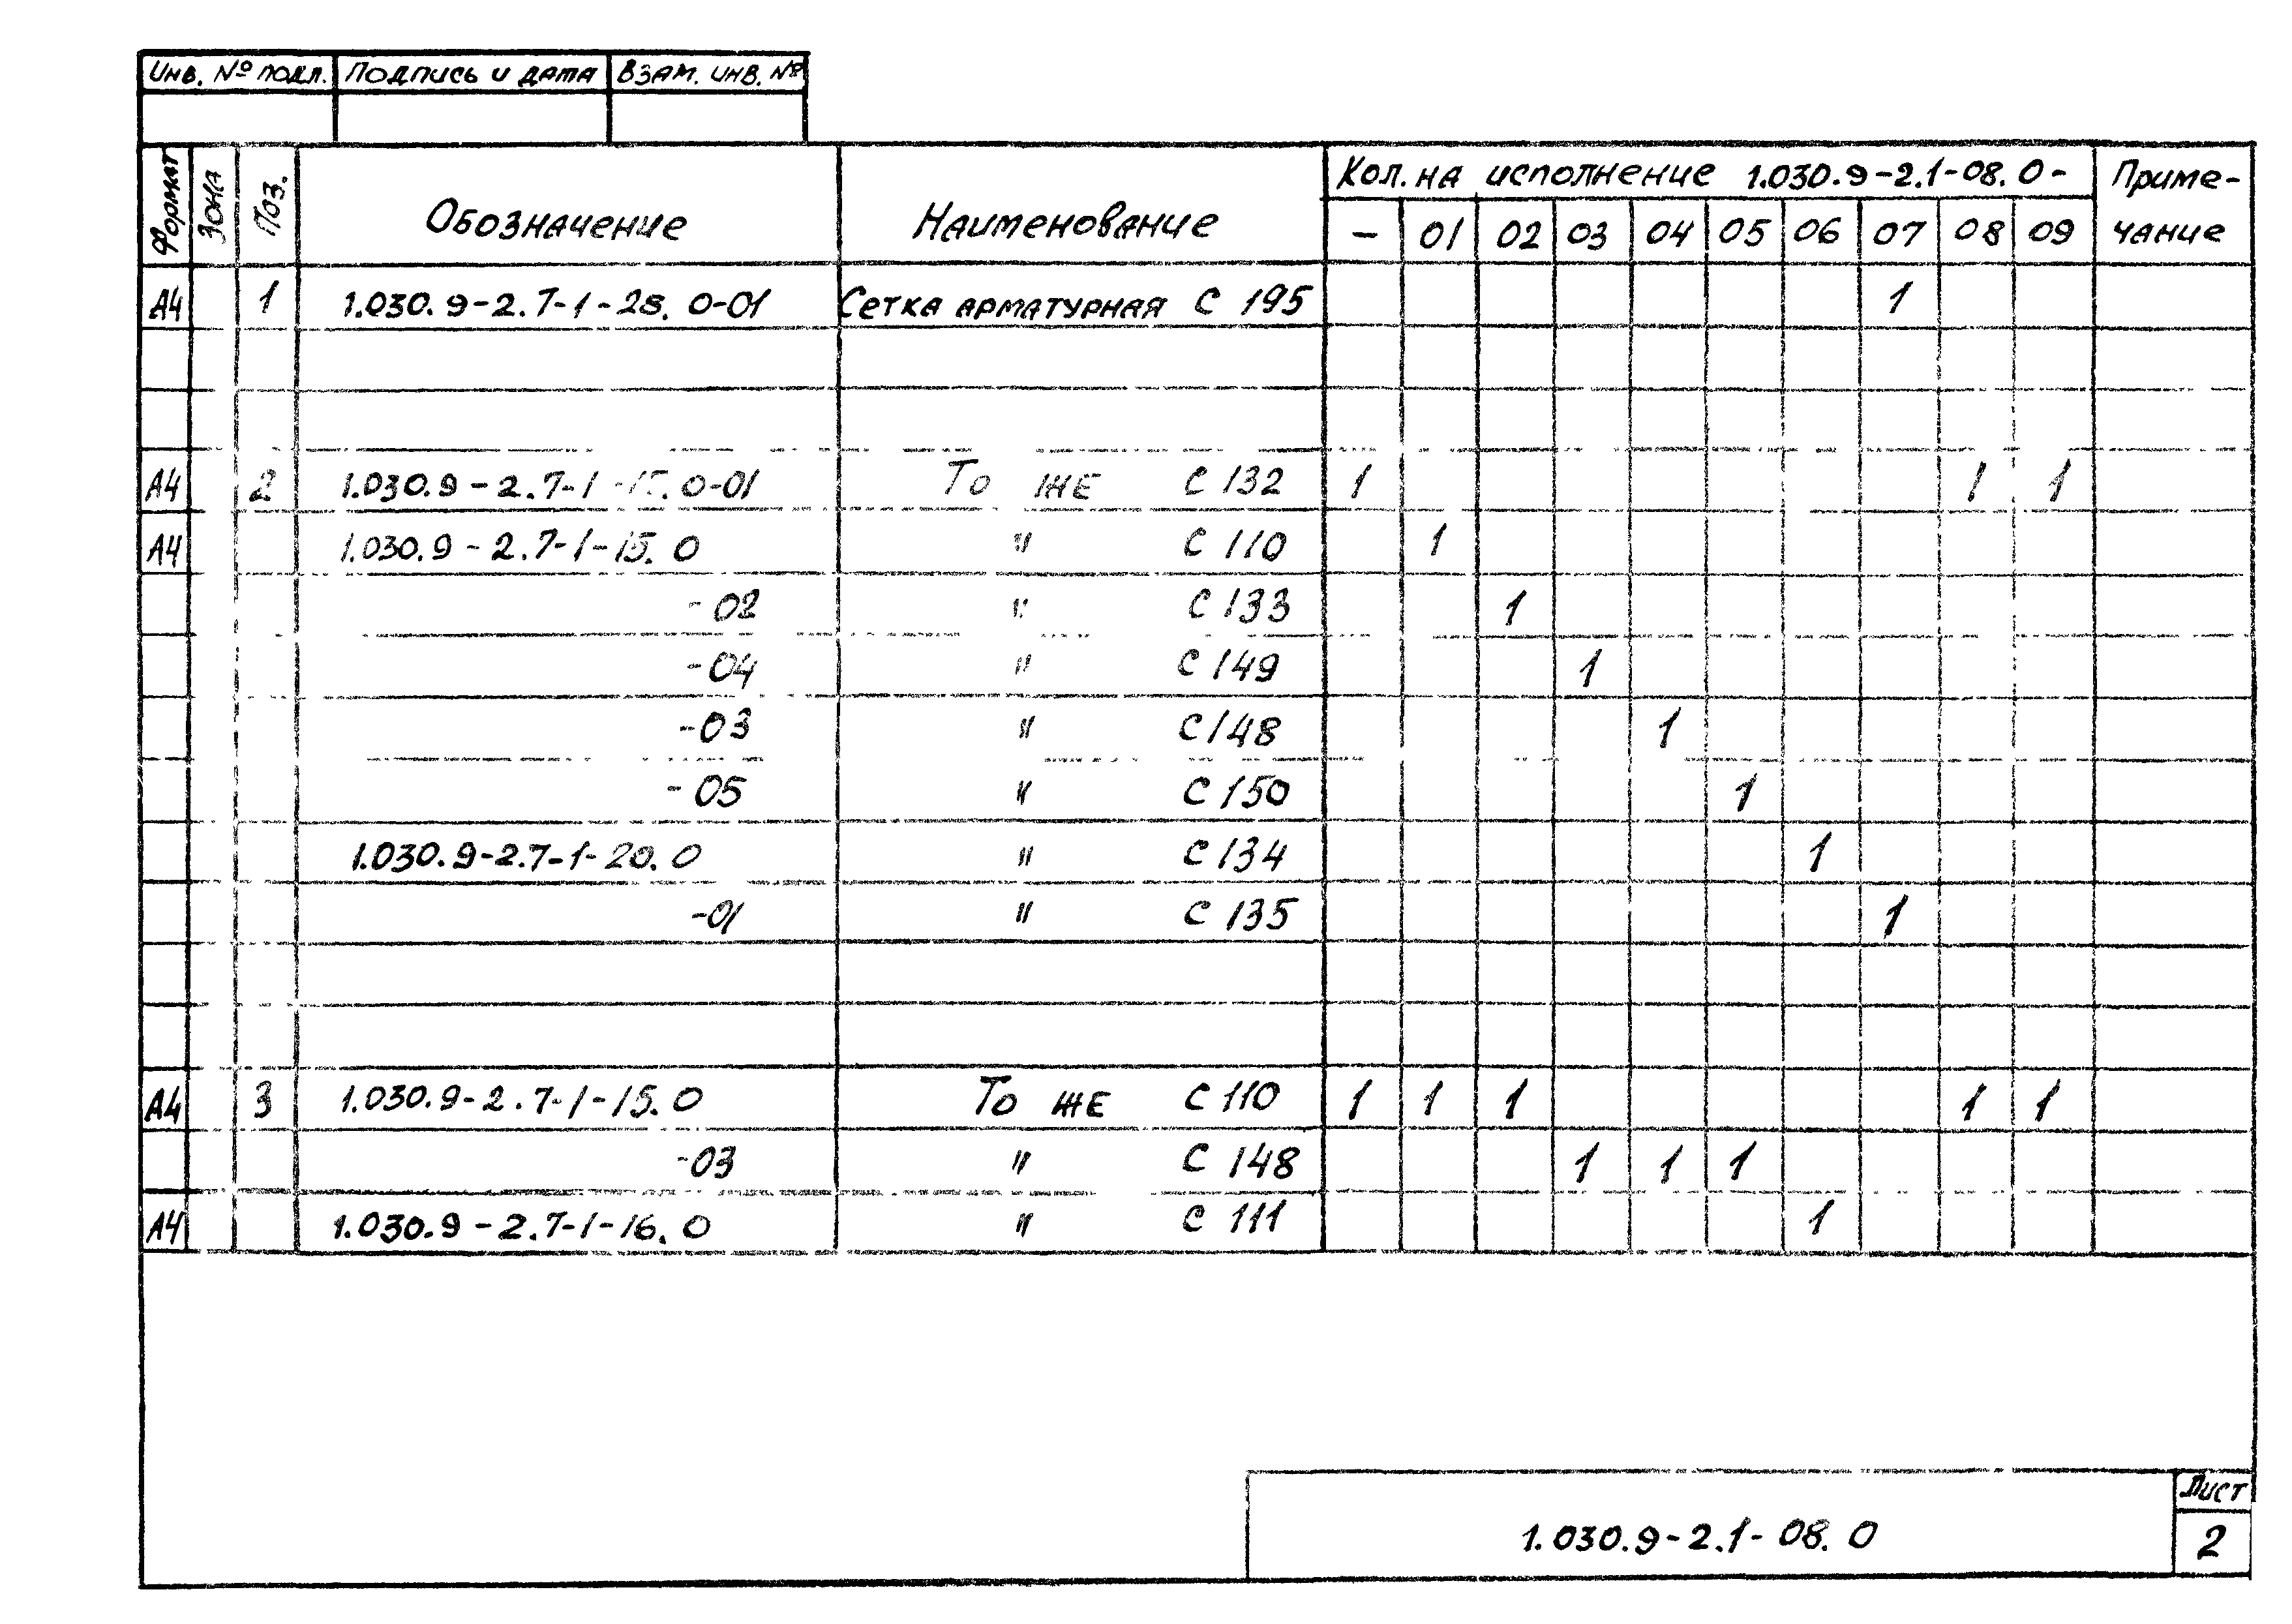 Инв. № подл. Подпись и дата Взам. инв. №
Формат Зона Поз. Обозначение Наименование Кол. на исполнение 1.030.9-2.1-08.0- Приме-
чание
- 01 02 03 04 05 06 07 08 09
А4 1 1.030.9-2.7-1-28.0-01 Сетка арматурная С 195 1
А4 2 1.030.9-2.7-1-15.0-01 То же С 132 1 1 1
А4 1.030.9-2.7-1-15.0 " С 110 1
-02 " С 133 1
-04 " С 149 1
-03 " С 148 1
-05 " С 150 1
1.030.9-2.7-1-20.0 " С 134 1
-01 " С 135 1
А4 3 1.030.9-2.7-1-15.0 То же С 110 1 1 1 1 1
-03 " С 148 1 1 1
А4 1.030.9-2.7-1-16.0 " С 111 1
1.030.9-2.1-08.0
Лист
2